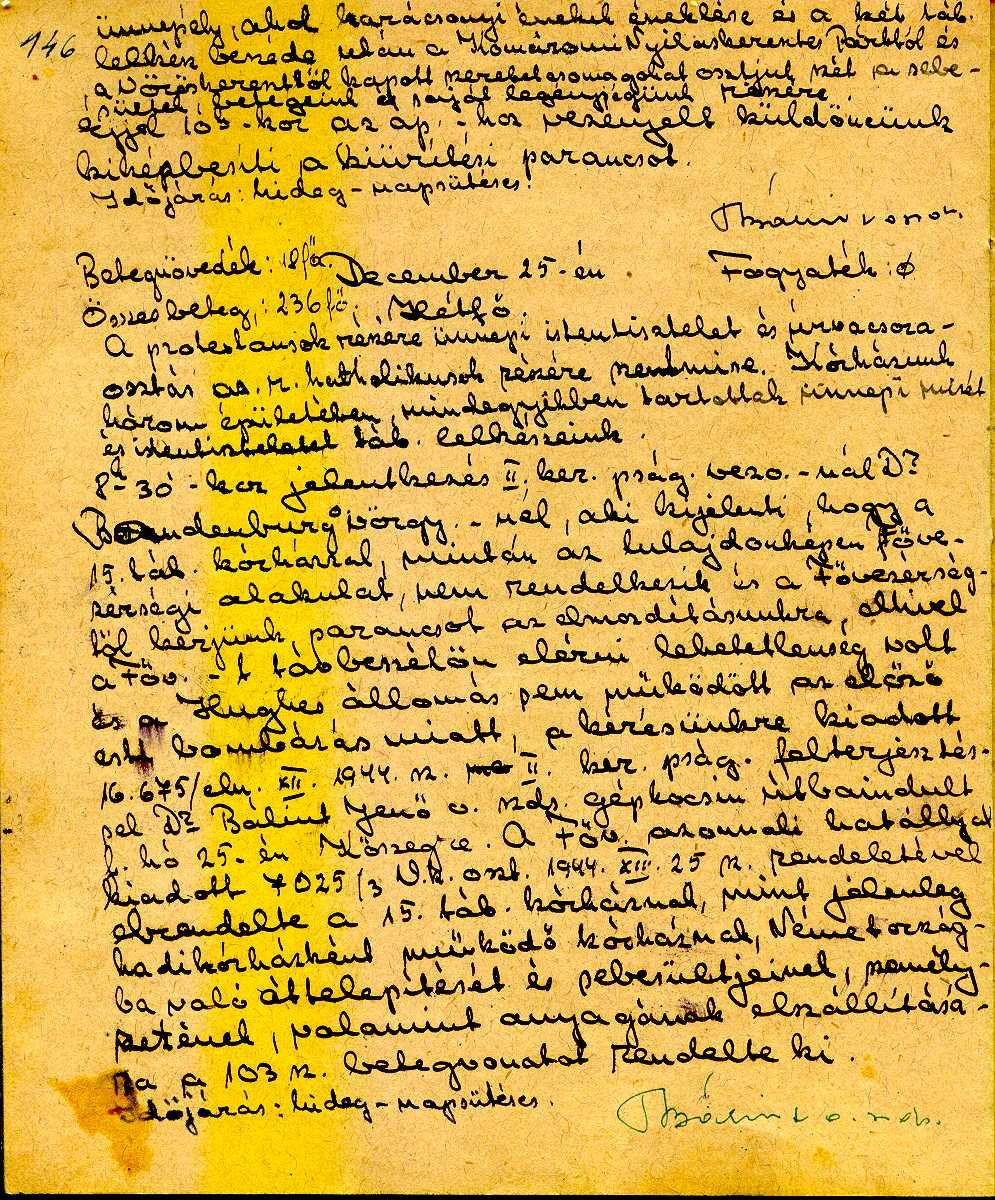 146
ünnepély, ahol karácsonyi énekek éneklése és a két táb.
lelkész beszéde után a Komáromi Nyilaskeresztes Párttól és
a Vöröskereszttől kapott szeretetcsomagokat osztjuk szét a sebe-
sültek, betegeink és saját legénységünk részére.
Éjjel 105-kor az ap. -hoz vezényelt küldöncünk
kikézbesíti a kiürítési parancsot.
Időjárás: hideg-napsütéses.
Betegnövedék: 18 fő. December 25-én Fogyaték: ø
Összes beteg: 236 fő. Hétfő.
A protestánsok részére ünnepi istentisztelet és úrvacsora-
osztás, a r. katholikusok részére szentmise. Kórházunk
három épületében, mindegyikben tartottak ünnepi misét
és istentiszteletet táb. lelkészeink.
8h-30-kor jelentkezés II. ker. pság. vezo.-nál Dr
Brandenburg vörgy.-nél, aki kijelenti, hogy a
15. táb. kórházzal, mintán az tulajdonképen Főve-
zérségi alakulat, nem rendelkezik és a Fővezérség-
től kérjünk parancsot az elmozdításunkra, althivel
a Föv.-t távbeszélőn elérni lehetetlenség volt
és a Hughes állomás sem működött az előző
esti bombázás miatt, a kérésünkre kiadott
16.675/eln. XII. 1944. sz. II. ker. pság. felterjesztés-
sel Dr Bálint Jenő o. szds. gépkocsin útbaindult
f. hó 25-én Kőszegre. A Föv. azonnali hatállyal
kiadott 7025/3 V.k. oszt. 1944. XII. 25 sz. rendeletével
elrendelte a 15. táb. kórháznak, mint jelenleg
hadikórházként működő kórháznak, Németország-
ba való áttelepítését és sebesültjeinek, személy-
zetének, valamint anyagának elszállításá-
ra a 103 sz. betegvonatot rendelte ki.
Időjárás: hideg-napsütéses.
Bálint o. szds.